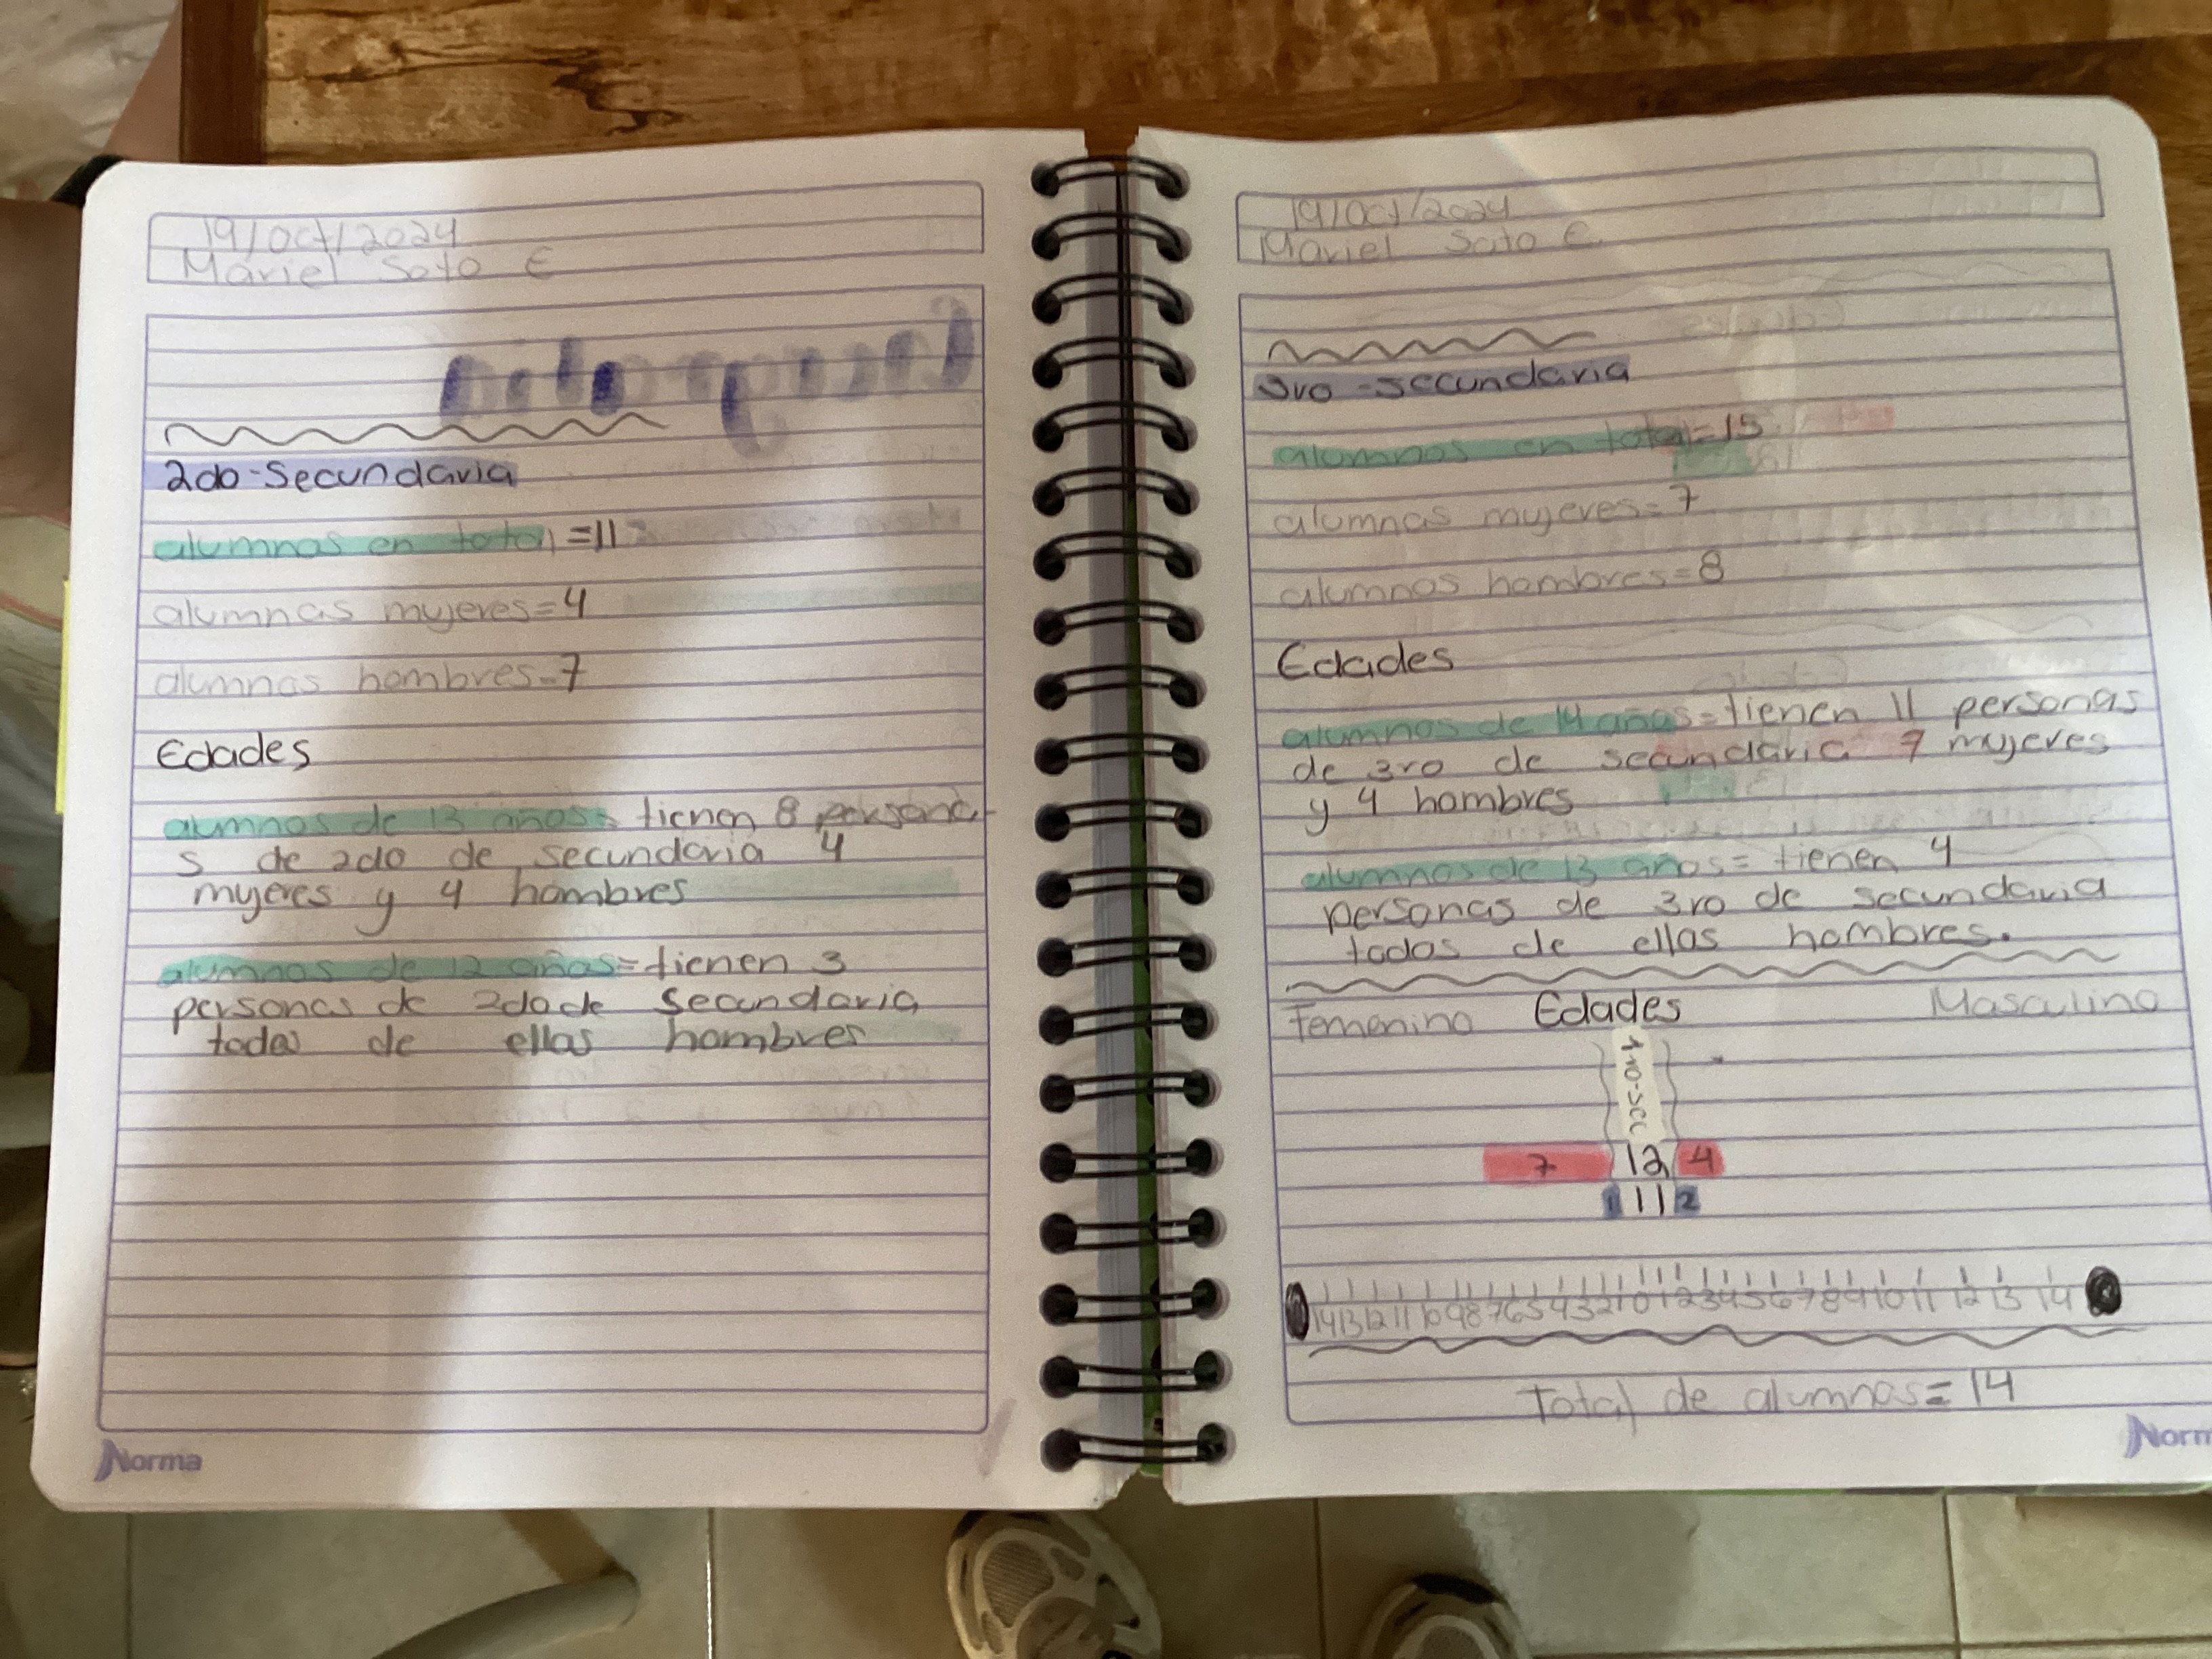 19/Oct/2024
Mariel Soto E
2do-Secundaria
alumnos en total =11
alumnas mujeres=4
alumnos hombres=7
Edades
alumnos de 13 años= tienen 8 persona
s de 2do de secundaria 4
mujeres y 4 hombres
alumnos de 12 años= tienen 3
personas de 2do de secundaria
todas de ellas hombres
Norma
19/Oct/2024
Mariel Soto E.
3ro-secundaria
alumnos en total=15
alumnas mujeres=7
alumnos hombres=8
Edades
alumnos de 14 años=tienen 11 personas
de 3ro de secundaria 7 mujeres
y 4 hombres
alumnos de 13 años= tienen 4
personas de 3ro de secundaria
todas de ellas hombres.
Femenino Edades Masculino
1ro-sec
7 12 4
1 11 2
14 13 12 11 10 9 8 7 6 5 4 3 2 1 0 1 2 3 4 5 6 7 8 9 10 11 12 13 14
Total de alumnos= 14
Norm